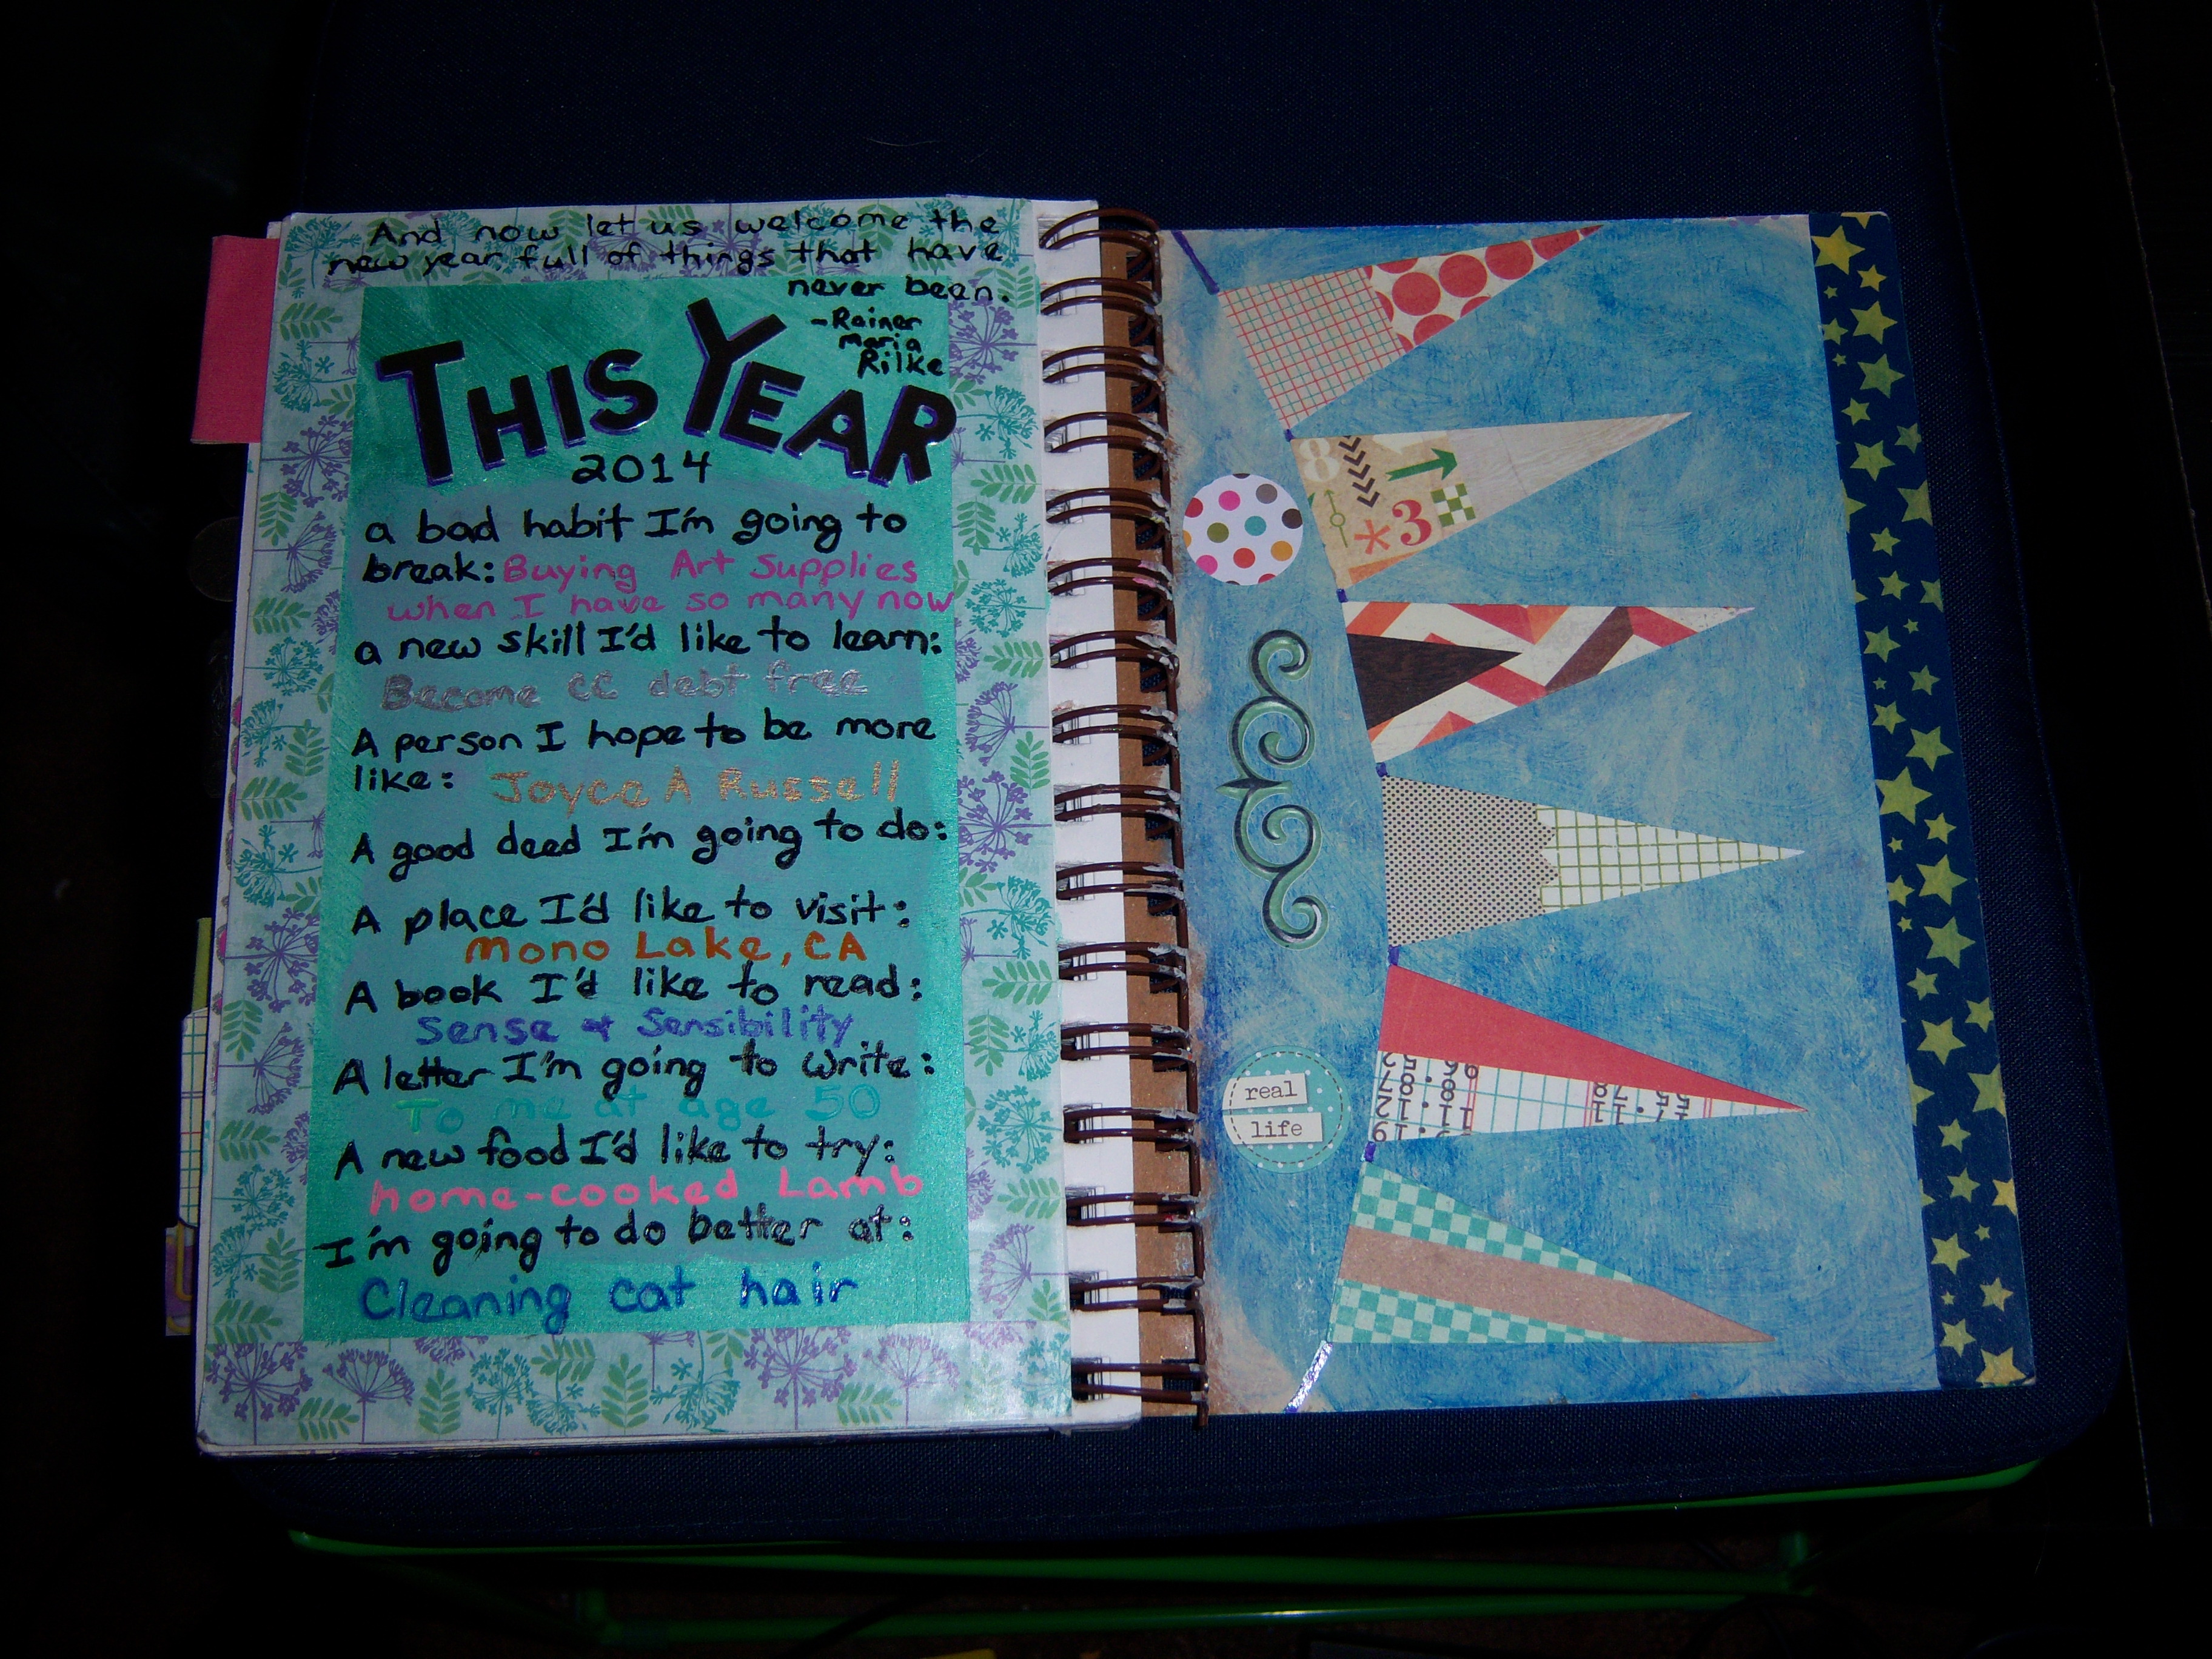 And now let us welcome the
new year full of things that have
never been.
-Rainer
Maria
Rilke
THIS YEAR
2014
a bad habit I'm going to
break: Buying Art Supplies
when I have so many now
a new skill I'd like to learn:
Become CC debt free
A person I hope to be more
like: Joyce A Russell
A good deed I'm going to do:
A place I'd like to visit:
Mono Lake, CA
A book I'd like to read:
Sense & Sensibility
A letter I'm going to write:
To me at age 50
A new food I'd like to try:
home-cooked Lamb
I'm going to do better at:
Cleaning cat hair
8
*3
real
life